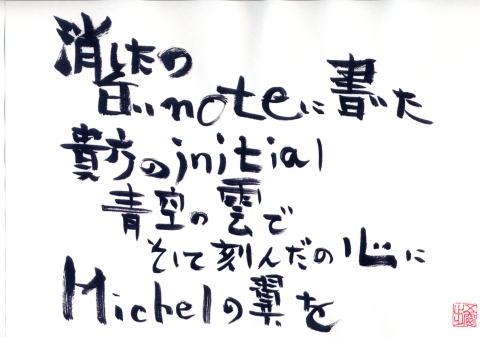 消したの
白いnoteに書いた
貴方のinitial
青空の雲で
そして刻んだの心に
Michelの翼を